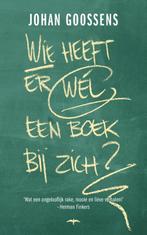 JOHAN GOOSSENS
WIE HEEFT
ER WÉL
EEN BOEK
BIJ ZICH?
'Wat een ongelooflijk rake, mooie en lieve verhalen!'
-Herman Finkers